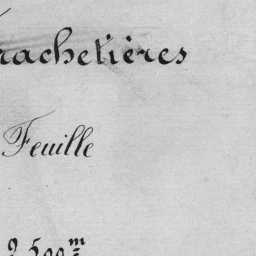 rachetières
Feuille
2.500m